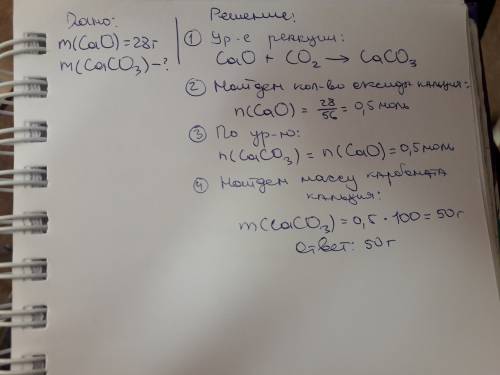 Дано:
m(CaO)=28г
m(CaCO₃)-?
Решение:
① Ур-е реакции:
CaO + CO₂ → CaCO₃
② Найдем кол-во оксида кальция:
n(CaO) = 28/56 = 0,5 моль
③ По ур-ю:
n(CaCO₃) = n(CaO) = 0,5 моль
④ Найдем массу карбоната
кальция:
m(CaCO₃) = 0,5 · 100 = 50 г
Ответ: 50 г